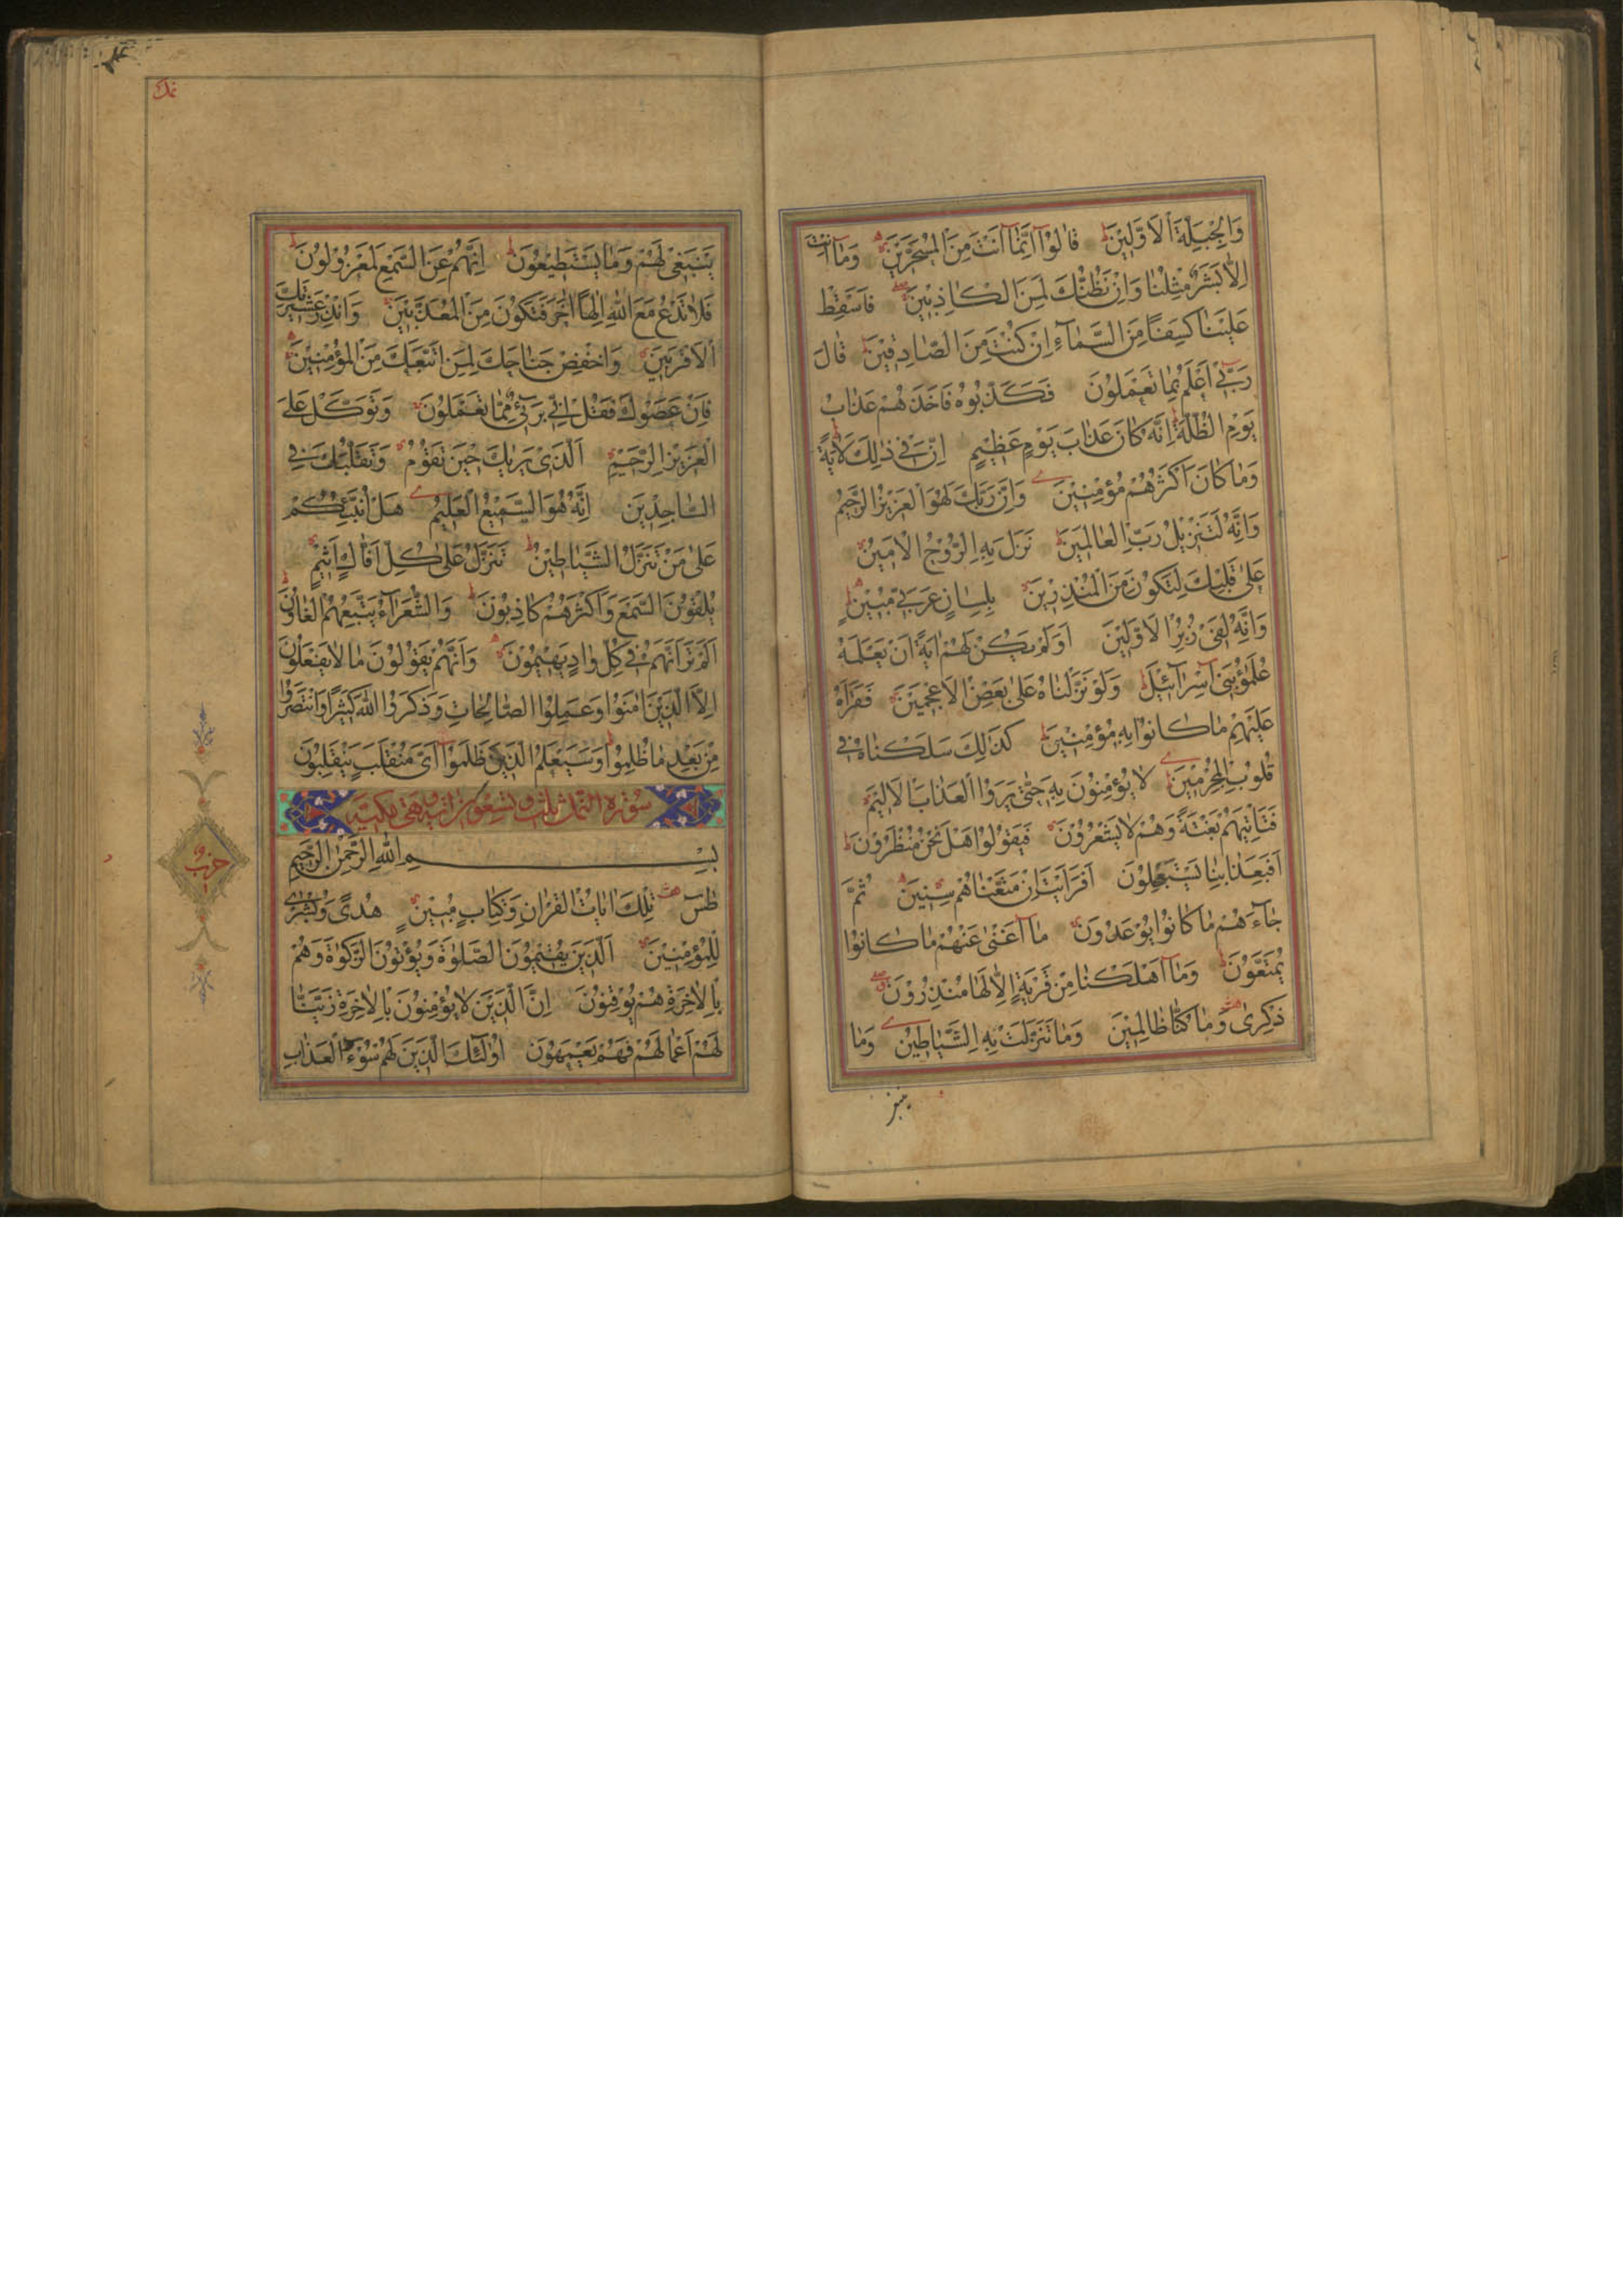 وَالْجِبِلَّةَ الْاَوَّلِينَ قَالُوا اِنَّمَا اَنْتَ مِنَ الْمُسَحَّرِينَ وَمَا اَنْتَ
اِلَّا بَشَرٌ مِثْلُنَا وَاِنْ نَظُنُّكَ لَمِنَ الْكَاذِبِينَ فَاَسْقِطْ
عَلَيْنَا كِسَفًا مِنَ السَّمَاءِ اِنْ كُنْتَ مِنَ الصَّادِقِينَ قَالَ
رَبِّي اَعْلَمُ بِمَا تَعْمَلُونَ فَكَذَّبُوهُ فَاَخَذَهُمْ عَذَابُ
يَوْمِ الظُّلَّةِ اِنَّهُ كَانَ عَذَابَ يَوْمٍ عَظِيمٍ اِنَّ فِي ذٰلِكَ لَاٰيَةً
وَمَا كَانَ اَكْثَرُهُمْ مُؤْمِنِينَ وَاِنَّ رَبَّكَ لَهُوَ الْعَزِيزُ الرَّحِيمُ
وَاِنَّهُ لَتَنْزِيلُ رَبِّ الْعَالَمِينَ نَزَلَ بِهِ الرُّوحُ الْاَمِينُ
عَلٰى قَلْبِكَ لِتَكُونَ مِنَ الْمُنْذِرِينَ بِلِسَانٍ عَرَبِيٍّ مُبِينٍ
وَاِنَّهُ لَفِي زُبُرِ الْاَوَّلِينَ اَوَلَمْ يَكُنْ لَهُمْ اٰيَةً اَنْ يَعْلَمَهُ
عُلَمٰؤُا بَنِي اِسْرَائِيلَ وَلَوْ نَزَّلْنَاهُ عَلٰى بَعْضِ الْاَعْجَمِينَ فَقَرَاَهُ
عَلَيْهِمْ مَا كَانُوا بِهِ مُؤْمِنِينَ كَذٰلِكَ سَلَكْنَاهُ فِي
قُلُوبِ الْمُجْرِمِينَ لَا يُؤْمِنُونَ بِهِ حَتّٰى يَرَوُا الْعَذَابَ الْاَلِيمَ
فَيَاْتِيَهُمْ بَغْتَةً وَهُمْ لَا يَشْعُرُونَ فَيَقُولُوا هَلْ نَحْنُ مُنْظَرُونَ
اَفَبِعَذَابِنَا يَسْتَعْجِلُونَ اَفَرَاَيْتَ اِنْ مَتَّعْنَاهُمْ سِنِينَ ثُمَّ
جَاءَهُمْ مَا كَانُوا يُوعَدُونَ مَا اَغْنٰى عَنْهُمْ مَا كَانُوا
يُمَتَّعُونَ وَمَا اَهْلَكْنَا مِنْ قَرْيَةٍ اِلَّا لَهَا مُنْذِرُونَ
ذِكْرٰى وَمَا كُنَّا ظَالِمِينَ وَمَا تَنَزَّلَتْ بِهِ الشَّيَاطِينُ وَمَا
ينبغي
يَنْبَغِي لَهُمْ وَمَا يَسْتَطِيعُونَ اِنَّهُمْ عَنِ السَّمْعِ لَمَعْزُولُونَ
فَلَا تَدْعُ مَعَ اللّٰهِ اِلٰهًا اٰخَرَ فَتَكُونَ مِنَ الْمُعَذَّبِينَ وَاَنْذِرْ عَشِيرَتَكَ
الْاَقْرَبِينَ وَاخْفِضْ جَنَاحَكَ لِمَنِ اتَّبَعَكَ مِنَ الْمُؤْمِنِينَ
فَاِنْ عَصَوْكَ فَقُلْ اِنِّي بَرِيءٌ مِمَّا تَعْمَلُونَ وَتَوَكَّلْ عَلَى
الْعَزِيزِ الرَّحِيمِ اَلَّذِي يَرٰيكَ حِينَ تَقُومُ وَتَقَلُّبَكَ فِي
السَّاجِدِينَ اِنَّهُ هُوَ السَّمِيعُ الْعَلِيمُ هَلْ اُنَبِّئُكُمْ
عَلٰى مَنْ تَنَزَّلُ الشَّيَاطِينُ تَنَزَّلُ عَلٰى كُلِّ اَفَّاكٍ اَثِيمٍ
يُلْقُونَ السَّمْعَ وَاَكْثَرُهُمْ كَاذِبُونَ وَالشُّعَرَاءُ يَتَّبِعُهُمُ الْغَاوُنَ
اَلَمْ تَرَ اَنَّهُمْ فِي كُلِّ وَادٍ يَهِيمُونَ وَاَنَّهُمْ يَقُولُونَ مَا لَا يَفْعَلُونَ
اِلَّا الَّذِينَ اٰمَنُوا وَعَمِلُوا الصَّالِحَاتِ وَذَكَرُوا اللّٰهَ كَثِيرًا وَانْتَصَرُوا
مِنْ بَعْدِ مَا ظُلِمُوا وَسَيَعْلَمُ الَّذِينَ ظَلَمُوا اَيَّ مُنْقَلَبٍ يَنْقَلِبُونَ
سورة النمل ثلث وتسعون اية وهي مكية
بِسْمِ اللّٰهِ الرَّحْمٰنِ الرَّحِيمِ
طٰسٓ تِلْكَ اٰيَاتُ الْقُرْاٰنِ وَكِتَابٍ مُبِينٍ هُدًى وَبُشْرٰى
لِلْمُؤْمِنِينَ اَلَّذِينَ يُقِيمُونَ الصَّلٰوةَ وَيُؤْتُونَ الزَّكٰوةَ وَهُمْ
بِالْاٰخِرَةِ هُمْ يُوقِنُونَ اِنَّ الَّذِينَ لَا يُؤْمِنُونَ بِالْاٰخِرَةِ زَيَّنَّا
لَهُمْ اَعْمَالَهُمْ فَهُمْ يَعْمَهُونَ اُولٰئِكَ الَّذِينَ لَهُمْ سُوءُ الْعَذَابِ
حزب